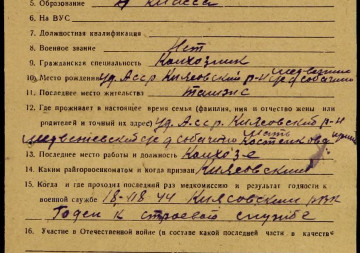 5. Образование 4 класса
6. На ВУС
7. Должностная квалификация
8. Военное звание Нет
9. Гражданская специальность Колхозник
10. Место рождения Уд. Асср. Киясовский р-н
11. Последнее место жительства там же
12. Где проживает в настоящее время семья (фамилия, имя и отчество жены или
родителей и точный их адрес) Уд. Асср. Киясовский р-н
мать
13. Последнее место работы и должность Колхоз-е
14. Каким райгорвоенкоматом и когда призван Киясовским
15. Когда и где проходил последний раз медкомиссию и результат годности к
военной службе 18-VIII 44 Киясовским РВК
Годен к строевой службе
16. Участие в Отечественной войне (в составе какой последней части, в качестве